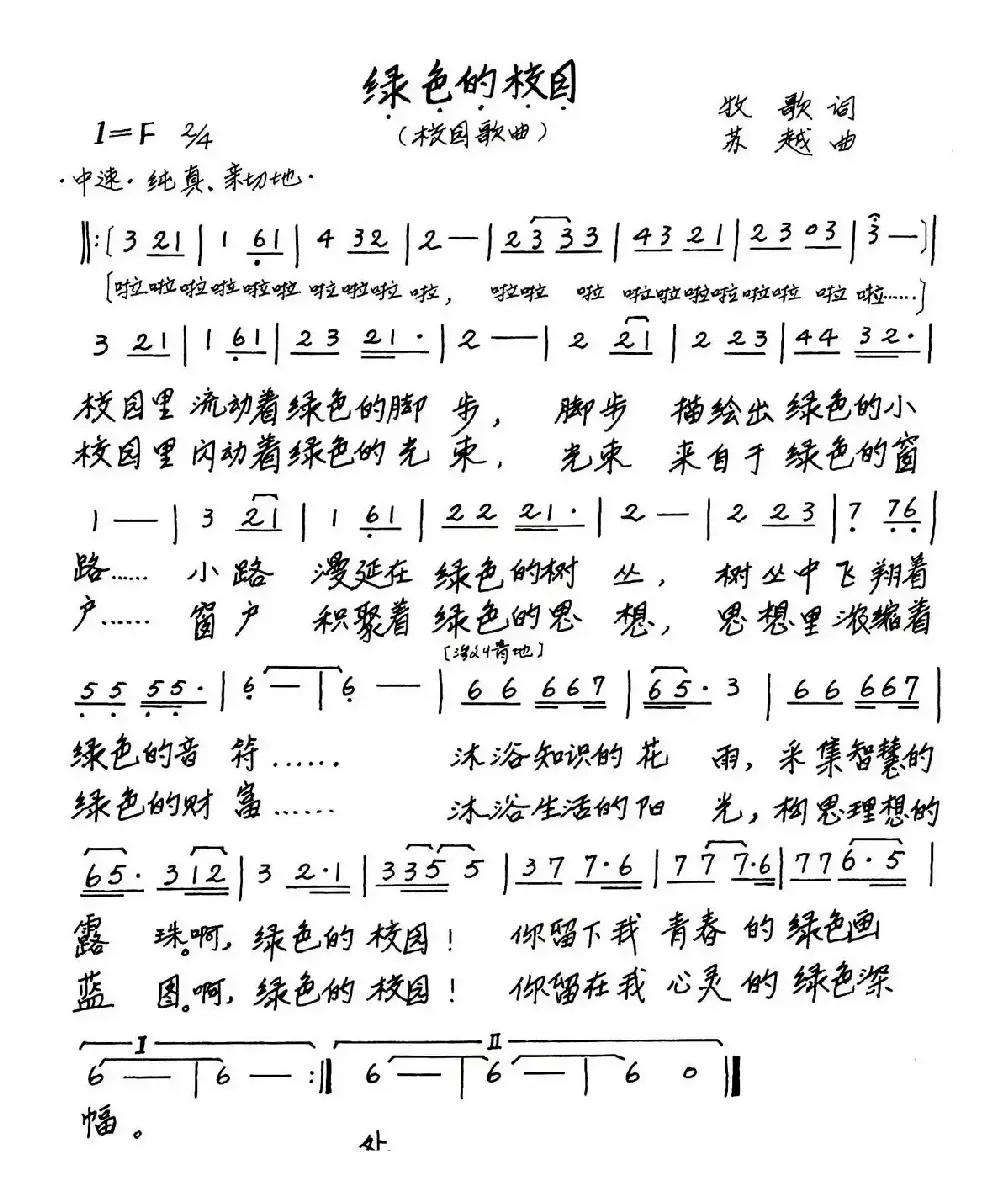 绿色的校园
(校园歌曲)
牧 歌 词
苏 越 曲
1=F 2/4
·中速·纯真、亲切地·
‖:(3 21 | 1 61 | 4 32 | 2 — | 23 33 | 43 21 | 23 03 | 3 —)|
(啦啦啦啦啦啦 啦啦啦 啦, 啦啦 啦 啦啦啦啦啦啦 啦 啦……)
3 21 | 1 61 | 23 21· | 2 — | 2 21 | 2 23 | 44 32· |
校园里 流动着绿色的脚 步, 脚步 描绘出 绿色的小
校园里 闪动着绿色的光 束, 光束 来自于 绿色的窗
1 — | 3 21 | 1 61 | 22 21· | 2 — | 2 23 | 7 76 |
路…… 小路 漫延在 绿色的树 丛, 树丛中飞翔着
户…… 窗户 积聚着 绿色的思 想, 思想里浓缩着
55 55· | 6 — | 6 — | 66 667 | 65· 3 | 66 667 |
绿色的音 符…… 沐浴知识的花 雨,采集智慧的
绿色的财 富…… 沐浴生活的阳 光,构思理想的
65· 312 | 3 2·1 | 335 5 | 37 7·6 | 77 7·6 | 77 6·5 |
露 珠。啊,绿色的校园! 你留下我 青春 的绿色画
蓝 图。啊,绿色的校园! 你留在我 心灵 的绿色深
I
II
6 — | 6 — :‖ 6 — | 6 — | 6 0 ‖
幅。
处